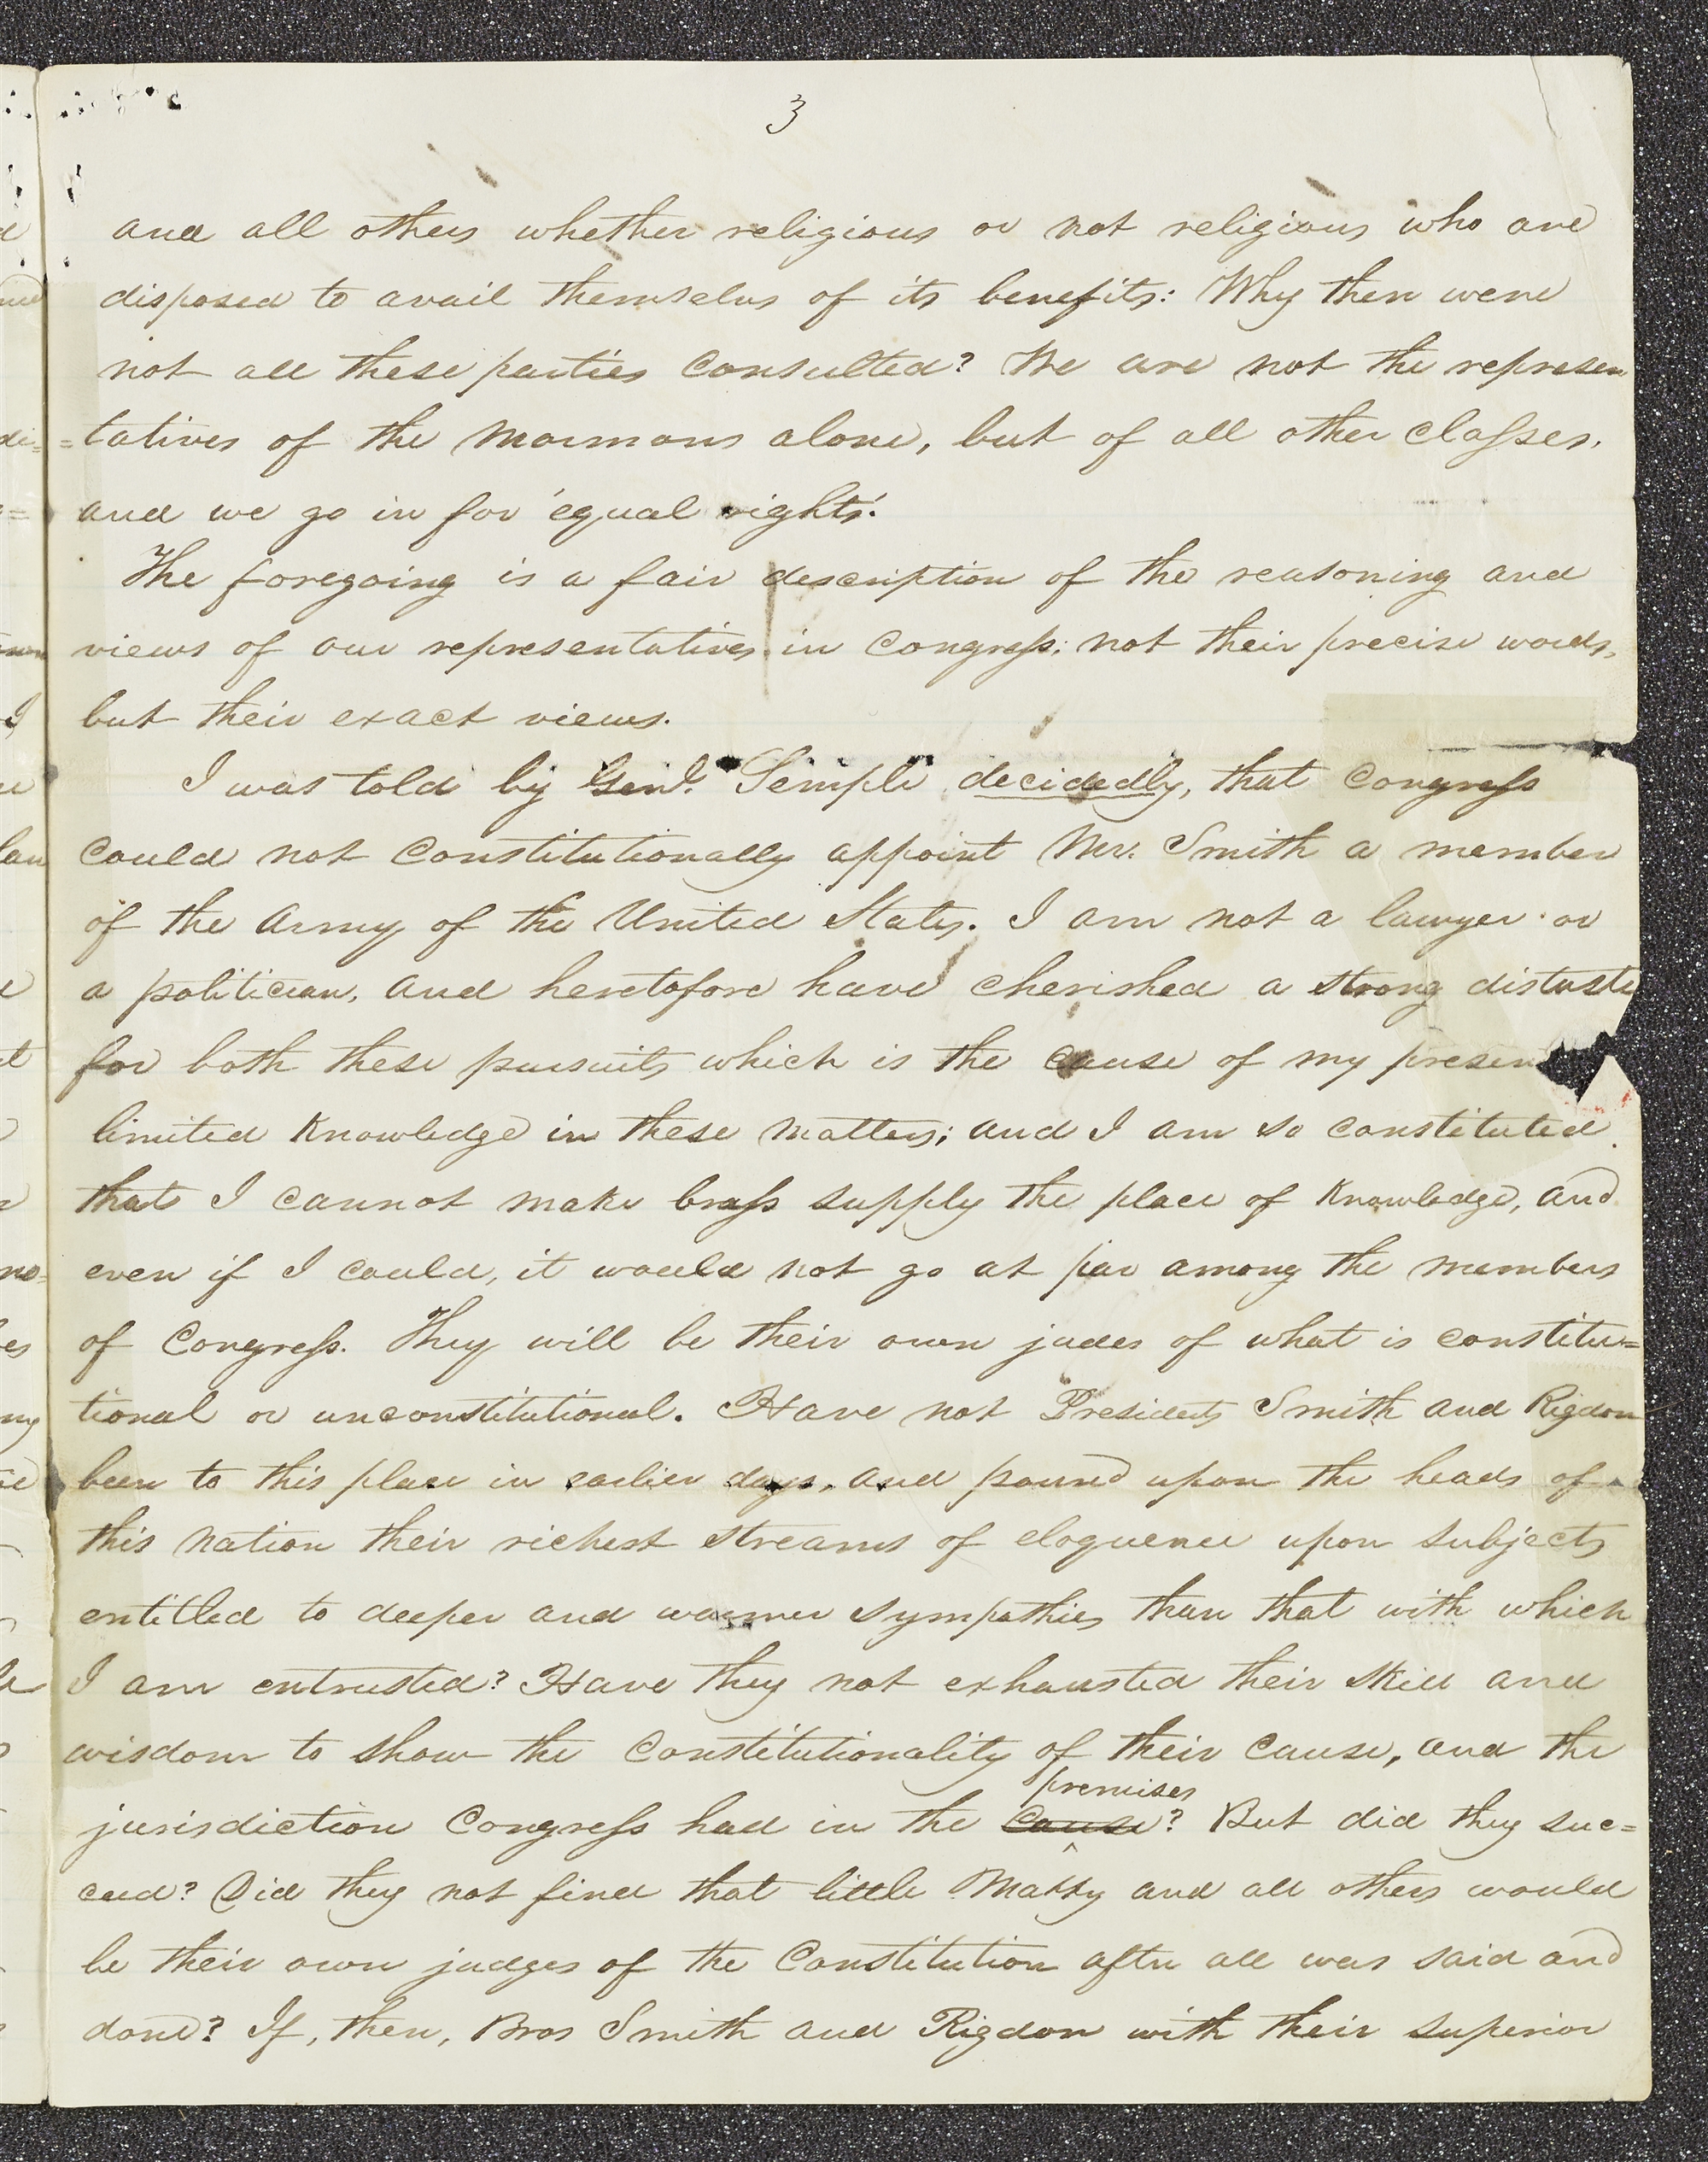 3
and all others whether religious or not religious who are
disposed to avail themselves of its benefits: Why then were
not all these parties consulted? We are not the represen
=tatives of the Mormons alone, but of all other classes,
and we go in for 'equal rights.'
The foregoing is a fair description of the reasoning and
views of our representatives in Congress; not their precise words,
but their exact views.
I was told by Genl. Semple decidedly, that Congress
could not constitutionally appoint Mr. Smith a member
of the Army of the United States. I am not a lawyer or
a politician, and heretofore have cherished a strong distaste
for both these pursuits which is the cause of my presen
limited knowledge in these matters; and I am so constituted
that I cannot make brass supply the place of knowledge, and
even if I could, it would not go at par among the members
of Congress. They will be their own judes of what is constitu=
tional or unconstitutional. Have not Presidents Smith and Rigdon
been to this place in earlier days, and poured upon the heads of
this nation their richest streams of eloquence upon subjects
entitled to deeper and warmer sympathies than that with which
I am entrusted? Have they not exhausted their skill and
wisdom to show the constitutionality of their cause, and the
premises
jurisdiction Congress had in the cause? But did they suc=
ceed? Did they not find that little Matty and all others would
be their own judges of the Constitution after all was said and
done? If, then, Bros Smith and Rigdon with their superior